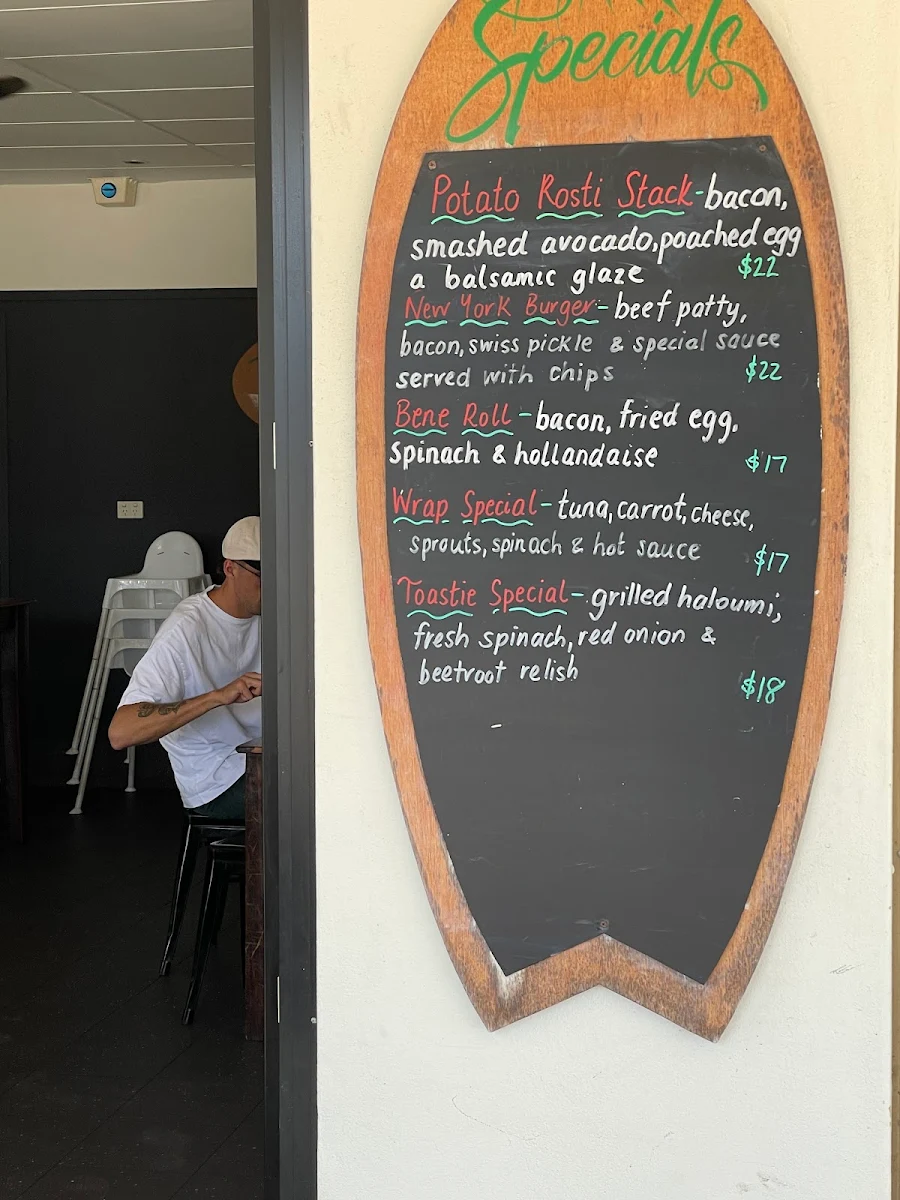 Specials
Potato Rosti Stack-bacon,
smashed avocado, poached egg
a balsamic glaze $22
New York Burger- beef patty,
bacon, swiss pickle & special sauce
served with chips $22
Bene Roll - bacon, fried egg,
spinach & hollandaise $17
Wrap Special - tuna, carrot, cheese,
sprouts, spinach & hot sauce $17
Toastie Special - grilled haloumi,
fresh spinach, red onion &
beetroot relish
$18